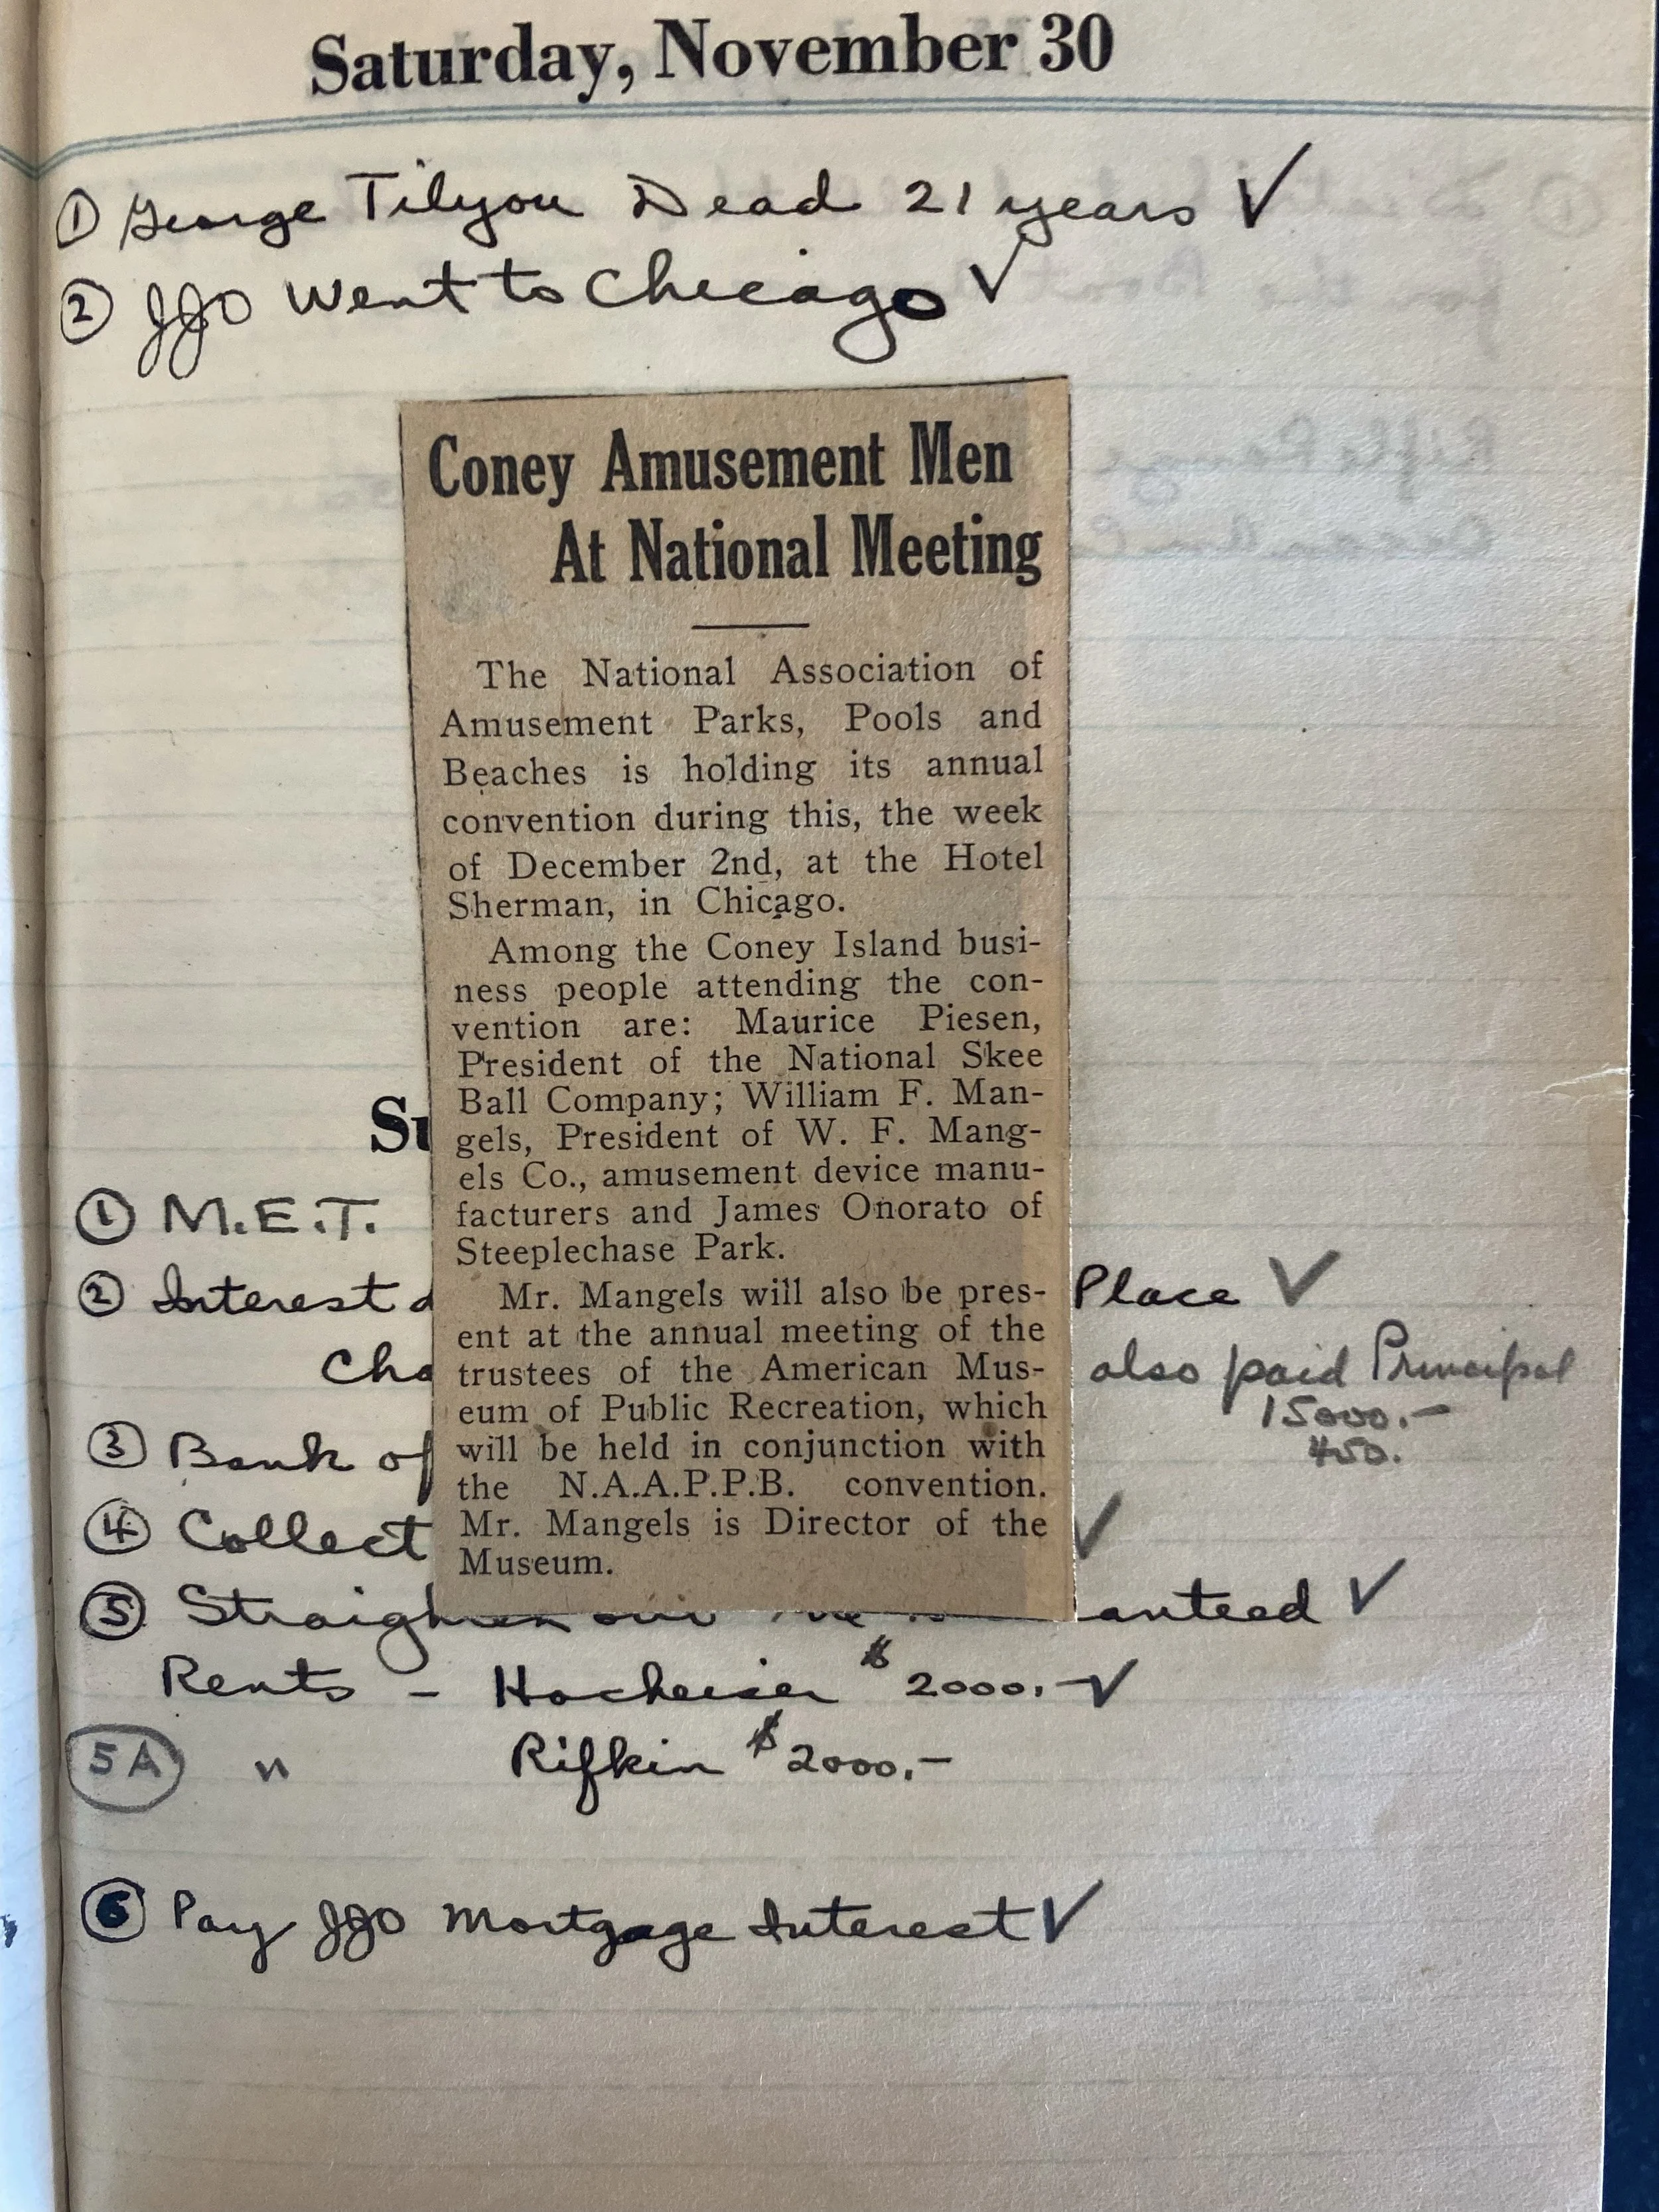 Saturday, November 30
① George Tilyou Dead 21 years ✓
② JJO Went to Chicago ✓
Coney Amusement Men
At National Meeting
The National Association of
Amusement Parks, Pools and
Beaches is holding its annual
convention during this, the week
of December 2nd, at the Hotel
Sherman, in Chicago.
Among the Coney Island busi-
ness people attending the con-
vention are: Maurice Piesen,
President of the National Skee
Ball Company; William F. Man-
gels, President of W. F. Mang-
els Co., amusement device manu-
facturers and James Onorato of
Steeplechase Park.
Mr. Mangels will also be pres-
ent at the annual meeting of the
trustees of the American Mus-
eum of Public Recreation, which
will be held in conjunction with
the N.A.A.P.P.B. convention.
Mr. Mangels is Director of the
Museum.
Su
① M.E.T.
② Interest Place ✓
Cha also paid Principal
15000.-
450.
③ Bank of
④ Collect ✓
⑤ Straighten out anteed ✓
Rents - Hocheiser $2000.- ✓
5A " Rifkin $2000.-
⑥ Pay JJO Mortgage Interest ✓